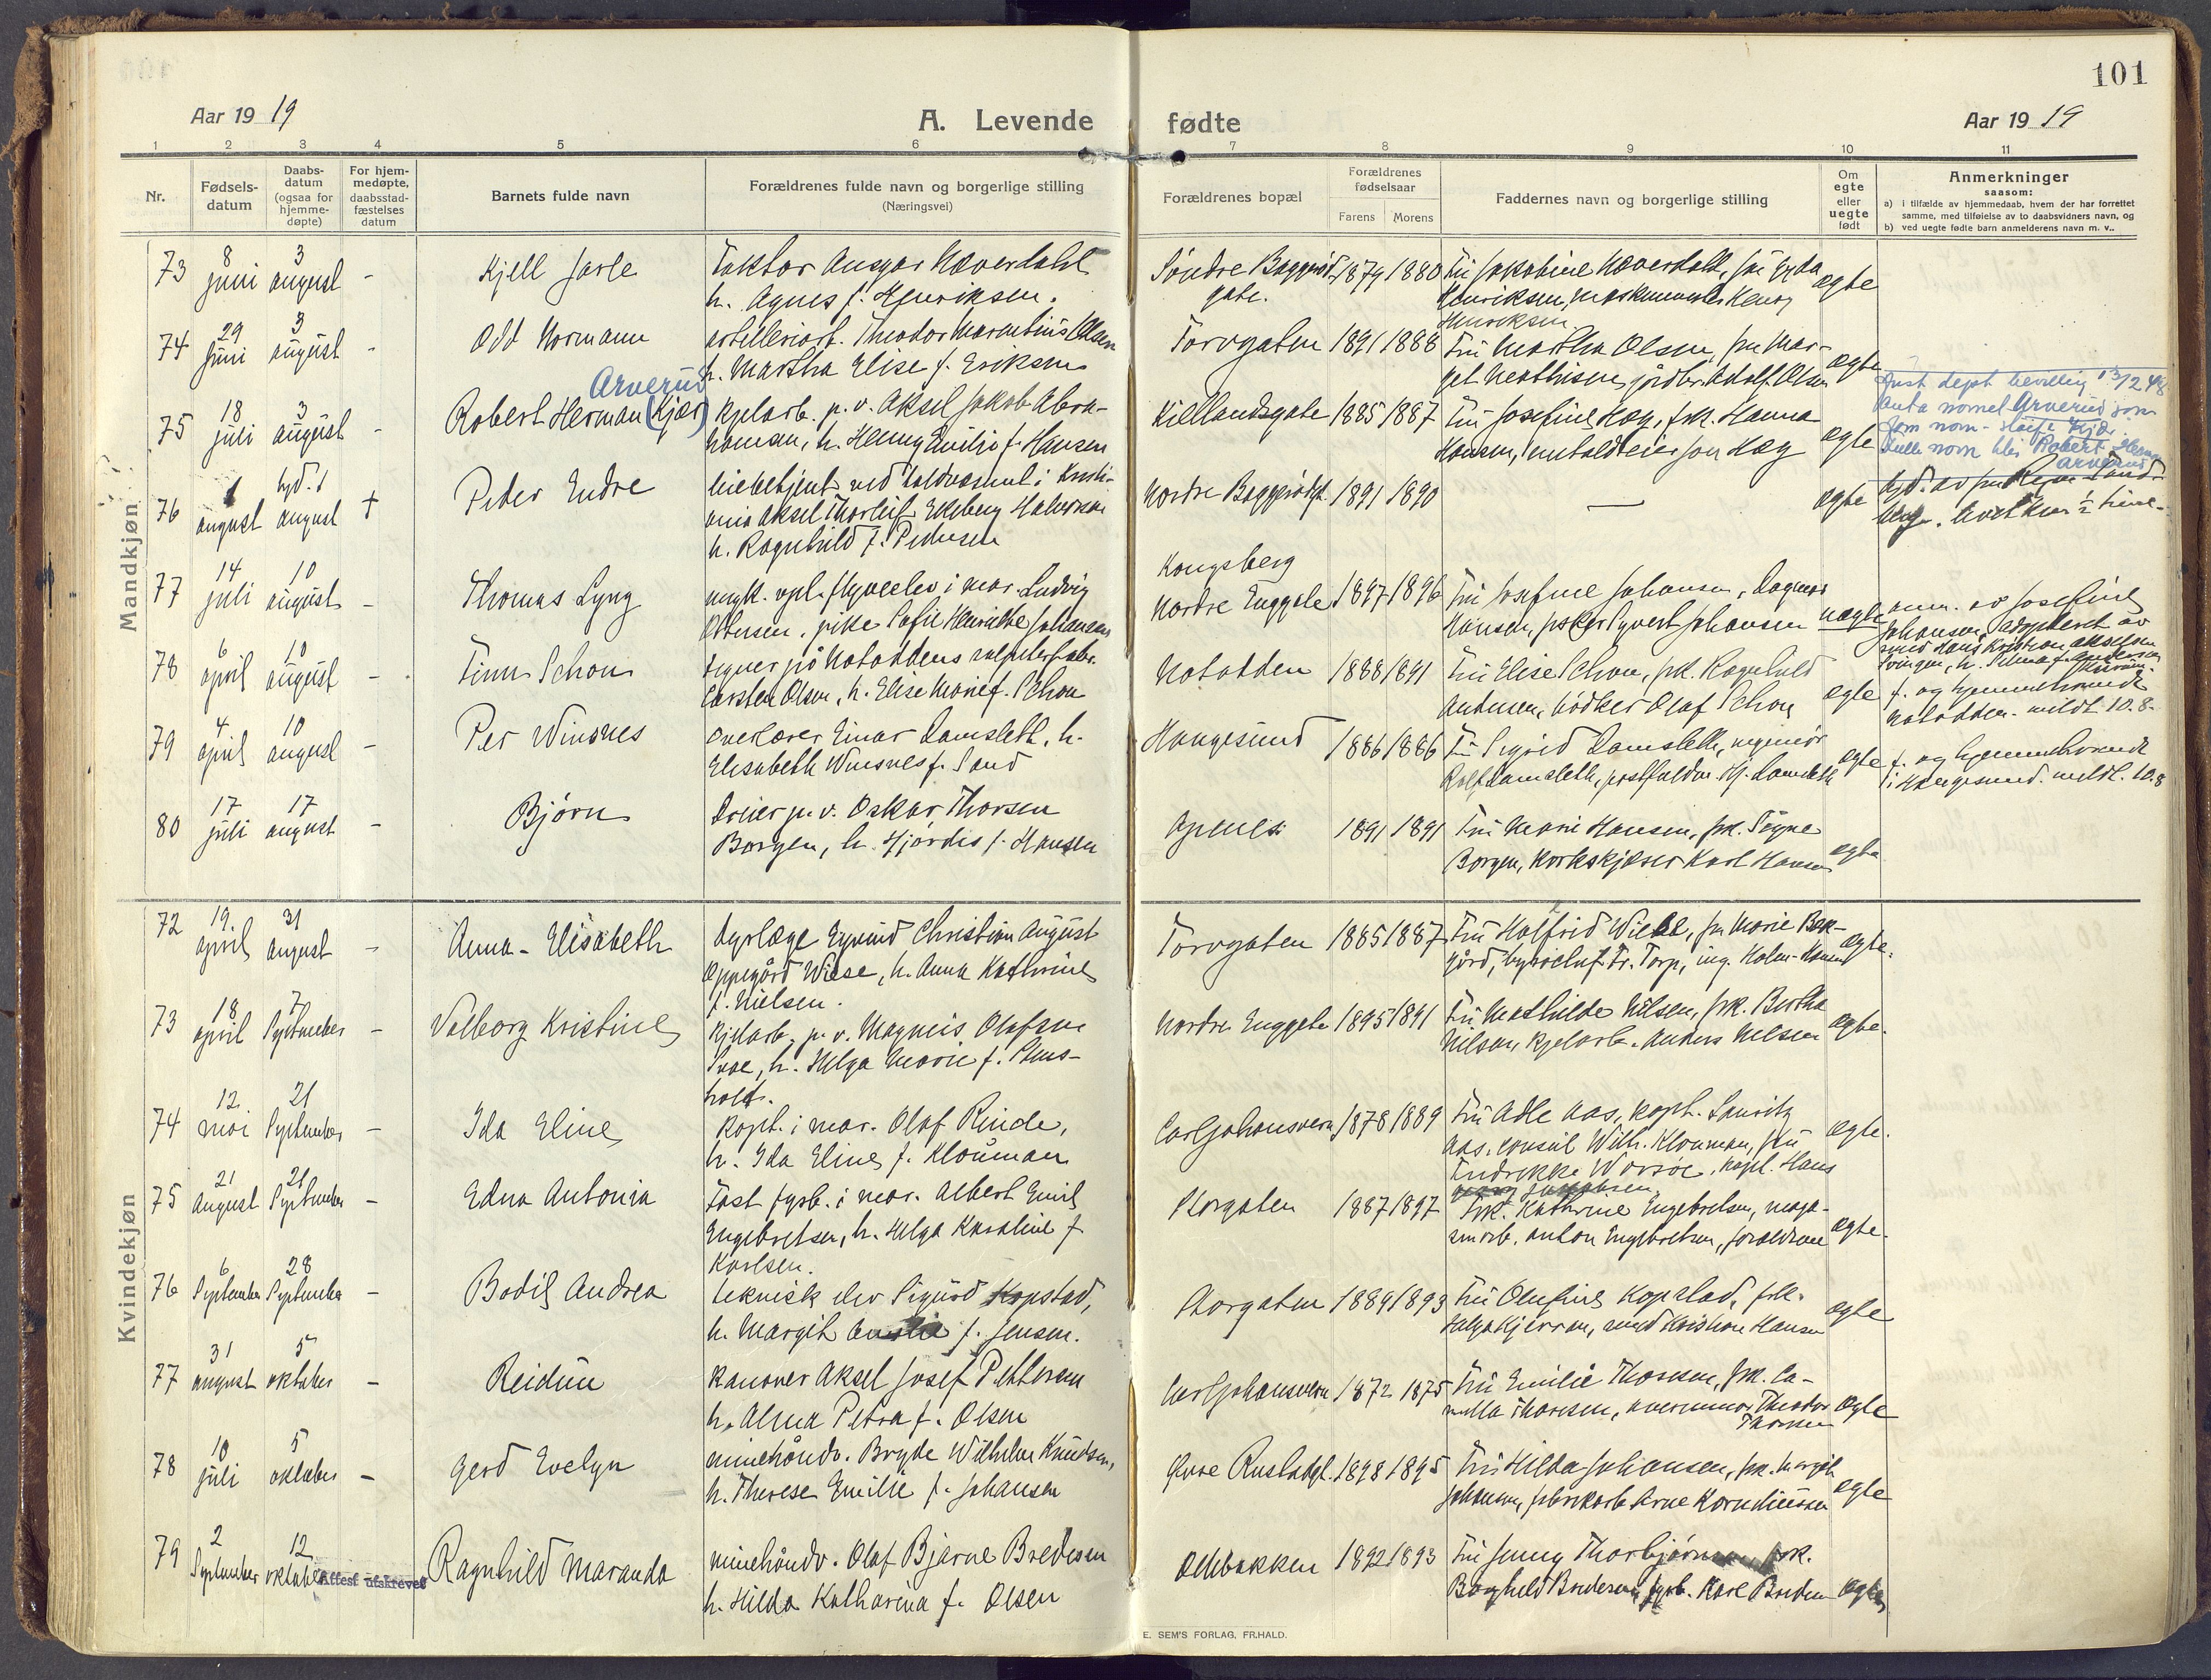 101
Aar 19 19
A. Levende fødte
Aar 19 19
1 2 3 4 5 6 7 8 9 10 11
Nr.
Fødsels-
datum
Daabs-
datum
(ogsaa for
hjemme-
døpte)
For hjem-
medøpte,
daabsstad-
fæstelses
datum
Barnets fulde navn
Forældrenes fulde navn og borgerlige stilling
(Næringsvei)
Forældrenes bopæl
Forældrenes
fødselsaar
Farens Morens
Faddernes navn og borgerlige stilling
Om
egte
eller
uegte
født
Anmerkninger
saasom:
a) i tilfælde av hjemmedaab, hvem der har forrettet
samme, med tilføielse av to daabsvidners navn, og
b) ved uegte fødte barn anmelderens navn m. v..
Mandkjøn
73 8 juni 3 august -
Kjell Jarle
Faktor Ansgar Næverdahl
h. Agnes f. Henriksen.
Søndre Baggerød-
gate.
1879 1880
Fru Jakobine Næverdahl, frk Gyda
Henriksen, maskinmester Henry
Henriksen
egte
74 29 juni 3 august -
Odd Normann
artilleriarb. Theodor Marentius Olsen
h. Martha Elise f. Eriksen
Torvgaten
1891 1888
Fru Martha Olsen, fru Mar-
get Mathisen, jordbr. Adolf Olsen
egte
75 18 juli 3 august -
Arverud
Robert Herman (Kjær)
Kjelarb. p. v. Aksel Jakob Abra-
hamsen, h. Henny Emilie f. Hansen
Kiellandsgate
1885 1887
Fru Josefine Hæg, frk. Hanna
Hansen,
egte
Just. dept bevilling 13/12 48
anta navnet Arverud som
fam navn - sløife Kjær.
Fulle navn blir Robert Herman
Arverud
76 1 august hjd. 1 august †
Peder Endre
betjent ved toldvæsenet i Kristi-
ania Aksel Thorleif Ekeberg Halvorsen
h. Ragnhild f. Pedersen
Nordre Baggerødgt.
1891 1890
—
egte
hjd. av fru
Levet kun ½ time.
77 14 juli 10 august -
Thomas Lyng
i mar. Ludvig
Ottersen, pike Sofie Henriette Johansen
Kongsberg
Nordre Enggate
1897 1896
Fru Josefine Johansen, Dagmar
Hansen, fisker Syvert Johansen
uegte
anm. av Josefine
Johansen, adopteret av
smed Hans Kristian Akselsen
Svingen, h. Selma f. Andersen
78 6 april 10 august -
Finn Schou
tegner på Notoddens salpeterfabr.
Carsten Olsen, h. Elise Marie f. Schou
Notodden
1888 1891
Fru Elise Schou, frk. Ragnhild
Andersen, bødker Olaf Schou
egte
f. og hjemmehørende
Notodden. meldt 10.8.
79 4 april 10 august -
Per Winsnes
Overlærer Einar Damsleth, h.
Elisabeth Winsnes f. Sand
Haugesund
1886 1886
Fru Sigrid Damsleth, ingeniør
Rolf Damsleth, postfuldm. Hj. Damsleth
egte
f. og hjemmehørende
i Haugesund. meldt. 10.8
80 17 juli 17 august -
Bjørn
Dreier p. v. Oskar Thorsen
Borgen, h. Hjørdis f. Hansen
Apenes
1891 1891
Fru Marie Hansen, frk. Signe
Borgen, Korkskjærer Karl Hansen
egte
Kvindekjøn
72 19. april 31 august -
Anna-Elisabeth
dyrlæge Eyvind Christian August
Oppegård Wiese, h. Anna Kathrine
f. Nielsen.
Torvgaten
1885 1887
Fru Halfrid Wiese, fru Marie Bek-
gård, byrochef Fr. Torp, ing. Holm-Hansen
egte.
73 18 april 7 September -
Valborg Kristine
Kjelarb. p. v. Magnus Olafsen
h. Helga Marie f.
holt.
Nordre Enggate
1895 1891
Fru Mathilde Nilsen, frk. Bertha
Nilsen, Kjelarb. Anders Nilsen
egte.
74 12 mai 21 September -
Ida Eline
Kapt. i mar. Olaf Rinde,
h. Ida Eline f. Klouman
Carljohansvern
1878 1889
Fru Adle Aas, kapt. Lauritz
Aas, konsul Wilh. Klouman, fru
Fredrikke Worsøe, kapt. Hans
egte.
75 21 August 21 September -
Edna Antonia
Fast fyrb. i mar. Albert Emil
Engebretsen, h. Helga Karoline f
Karlsen.
Storgaten
1887 1897
Frk. Kathrine Engebretsen, maga-
sinarb. Anton Engebretsen, forældrene
egte.
76 6 September 28 September -
Bodil Andrea
teknisk elev Sigurd Kopstad,
h. Margit f. Jensen.
Storgaten
1889 1893
Fru Olufine Kopstad, frk.
Helga Kjerran, smed Kristian Hansen
egte
77 31 august 5 oktober -
Reidun
kanoner Aksel Josef Pettersen
h. Alma Petra f. Olsen
Carljohansvern
1872 1875
Fru Emilie Thoresen, frk. Ca-
milla Thoresen, Theodor
Thoresen
egte
78 10 juli 5 oktober -
Gerd Evelyn
minehåndv. Bryde Wilhelm Knudsen,
h. Therese Emilie f. Johansen
Øvre Rustadgt.
1898 1895
Fru Hilda Johansen, frk. Margit
Johansen, fabrikarb. Arne Korneliussen
egte
79 2 September 12 oktober Attest utskrevet
Ragnhild Maranda
minehåndv. Olaf Bjarne Bredesen
h. Hilda Katharina f. Olsen
Ollebakken
1892 1893
Fru Jenny Thorbjørnsen, frk.
Borghild Bredesen, fyrb. Kåre Bredesen
egte
E. SEM'S FORLAG, FR.HALD.